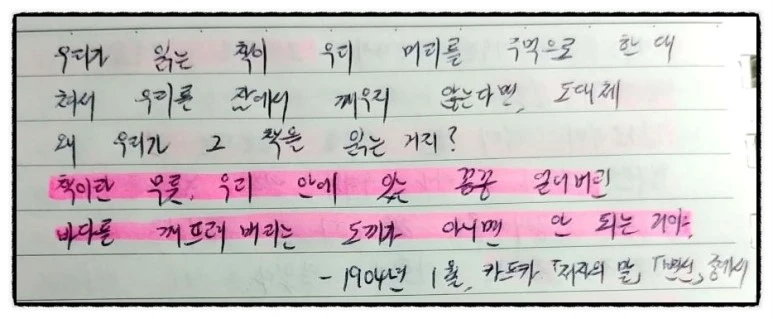 우리가 읽는 책이 우리 머리를 주먹으로 한 대
쳐서 우리를 잠에서 깨우지 않는다면, 도대체
왜 우리가 그 책을 읽는 거지?
책이란 무릇, 우리 안에 있는 꽁꽁 얼어버린
바다를 깨뜨려 버리는 도끼가 아니면 안 되는 거야.
- 1904년 1월, 카프카 「저자의 말」, 「변신」 중에서